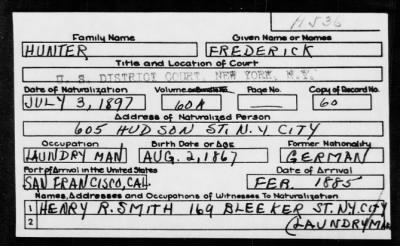 H536
Family Name Given Name or Names
HUNTER FREDERICK
Title and Location of Court
U. S. DISTRICT COURT, NEW YORK, N.Y.
Date of Naturalization Volume or Bundle No. Page No. Copy of Record No.
JULY 3, 1897 60A — 60
Address of Naturalized Person
605 HUDSON ST. N.Y CITY
Occupation Birth Date or Age Former Nationality
LAUNDRY MAN AUG. 2, 1867 GERMAN
Port of Arrival in the United States Date of Arrival
SAN FRANCISCO, CAL. FEB. 1885
Names, Addresses and Occupations of Witnesses To Naturalization
1 HENRY R. SMITH 169 BLEEKER ST. N.Y. CITY
2 (LAUNDRYMAN